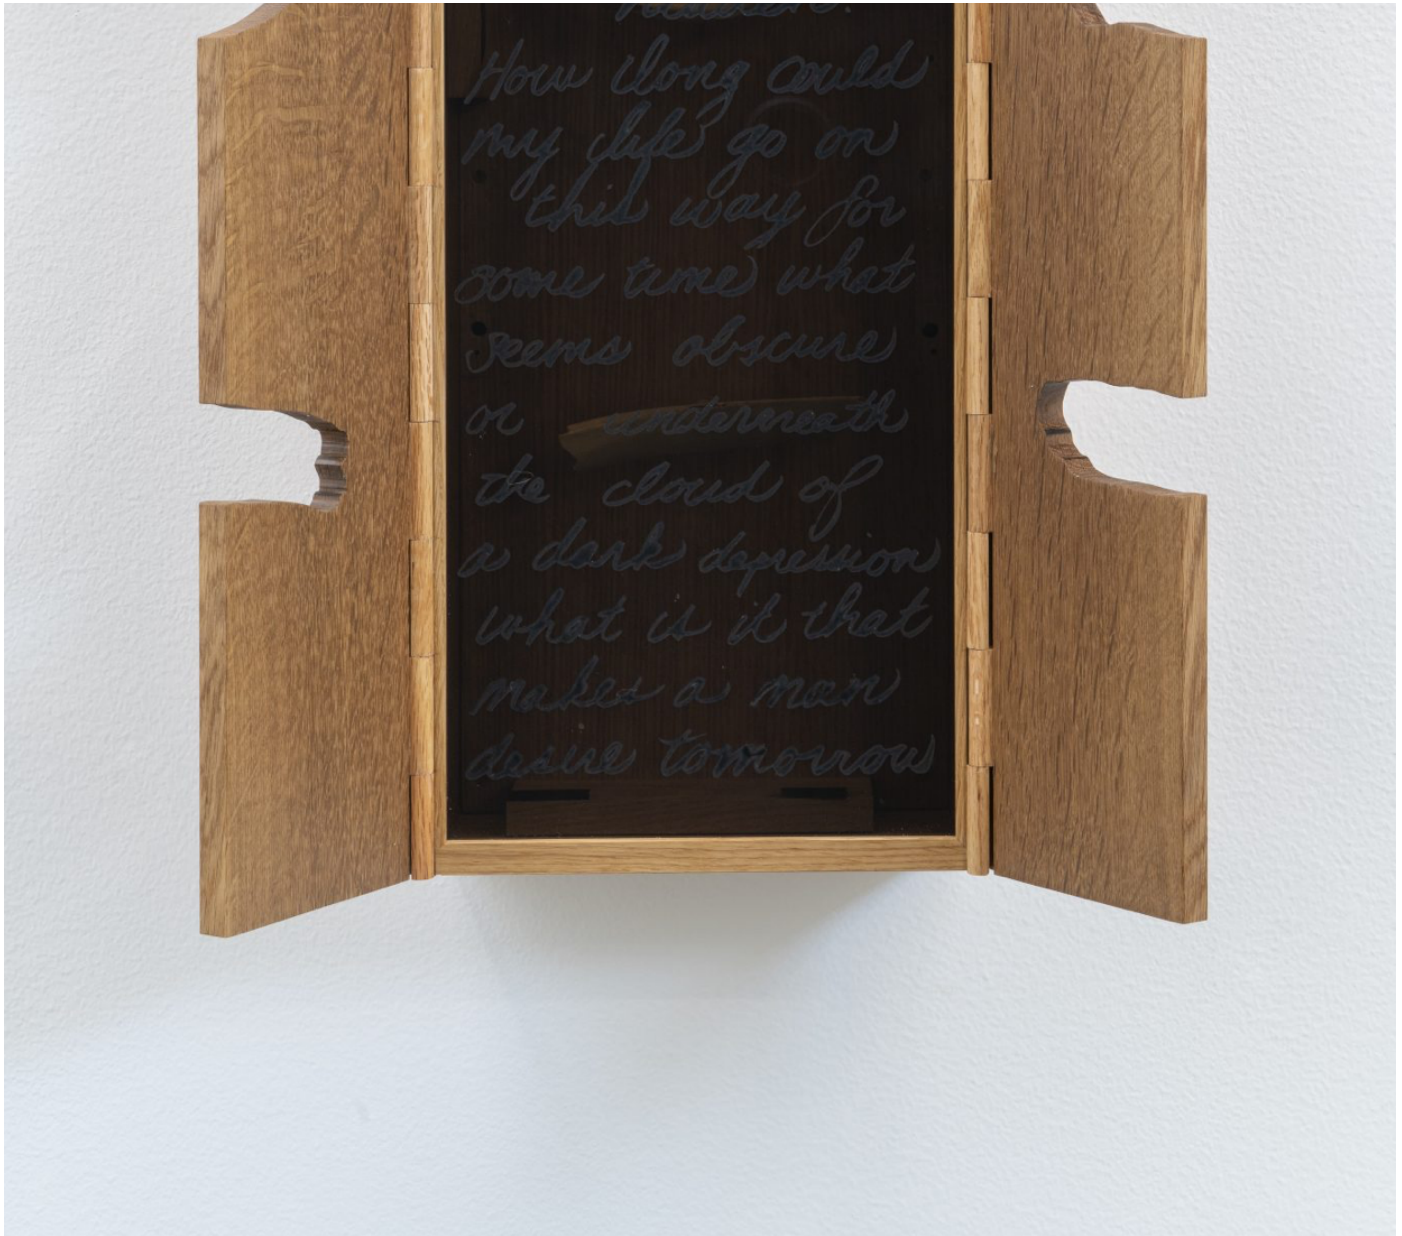 How long could
my life go on
this way for
some time what
seems obscure
or underneath
the cloud of
a dark depression
what is it that
makes a man
desire tomorrow